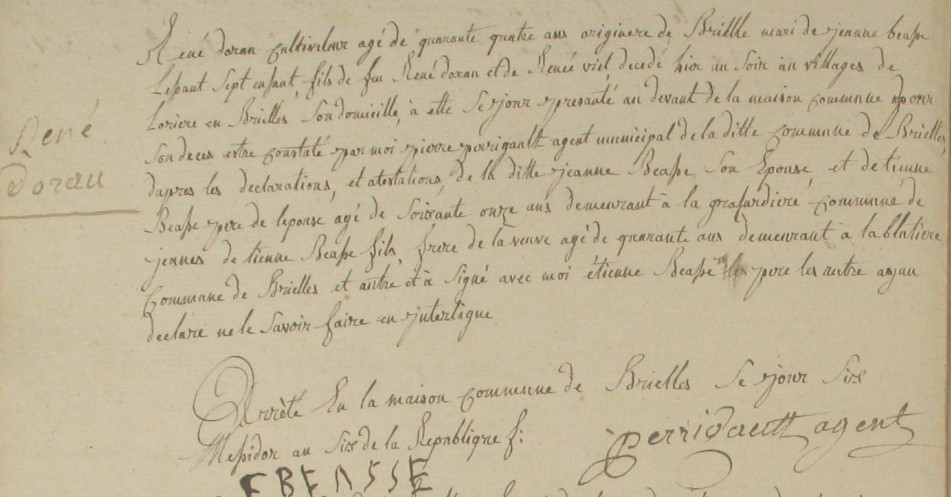 René doran Cultivateur agé de quarante quatre ans originere de Brielle mari de jeanne beasse
Lessant Sept enfant, fils de feu René doran et de Reneé viel decedé hier au Soir au villages de
Loriere en Brielles, Son domicille, à etté Se jour presanté au devant de la maison Commune pour
René
Son deces estre Constaté par moi pierre perrigault agent municipal de la ditte Commune de Brielles
doran
dapres les declarations, et atestations, de la ditte jeanne Beasse Son Epouse et detienne
Beasse pere de lepouse agé de Soissante onze ans demeurant à la grafardiere Commune de
gennes de tienne Beasse fils, frere de la veuve agé de quarante ans demeurant à la blatiere
Commune de Brielles et autre et à Signé avec moi étienne Beasse pere les autre ayan
declare ne le Savoir faire en jnterligne
Arrèté En la maison Commune de Brielles Se jour Six
Messidor an Six de la Republique f:
perrigault agent
EBEASSE